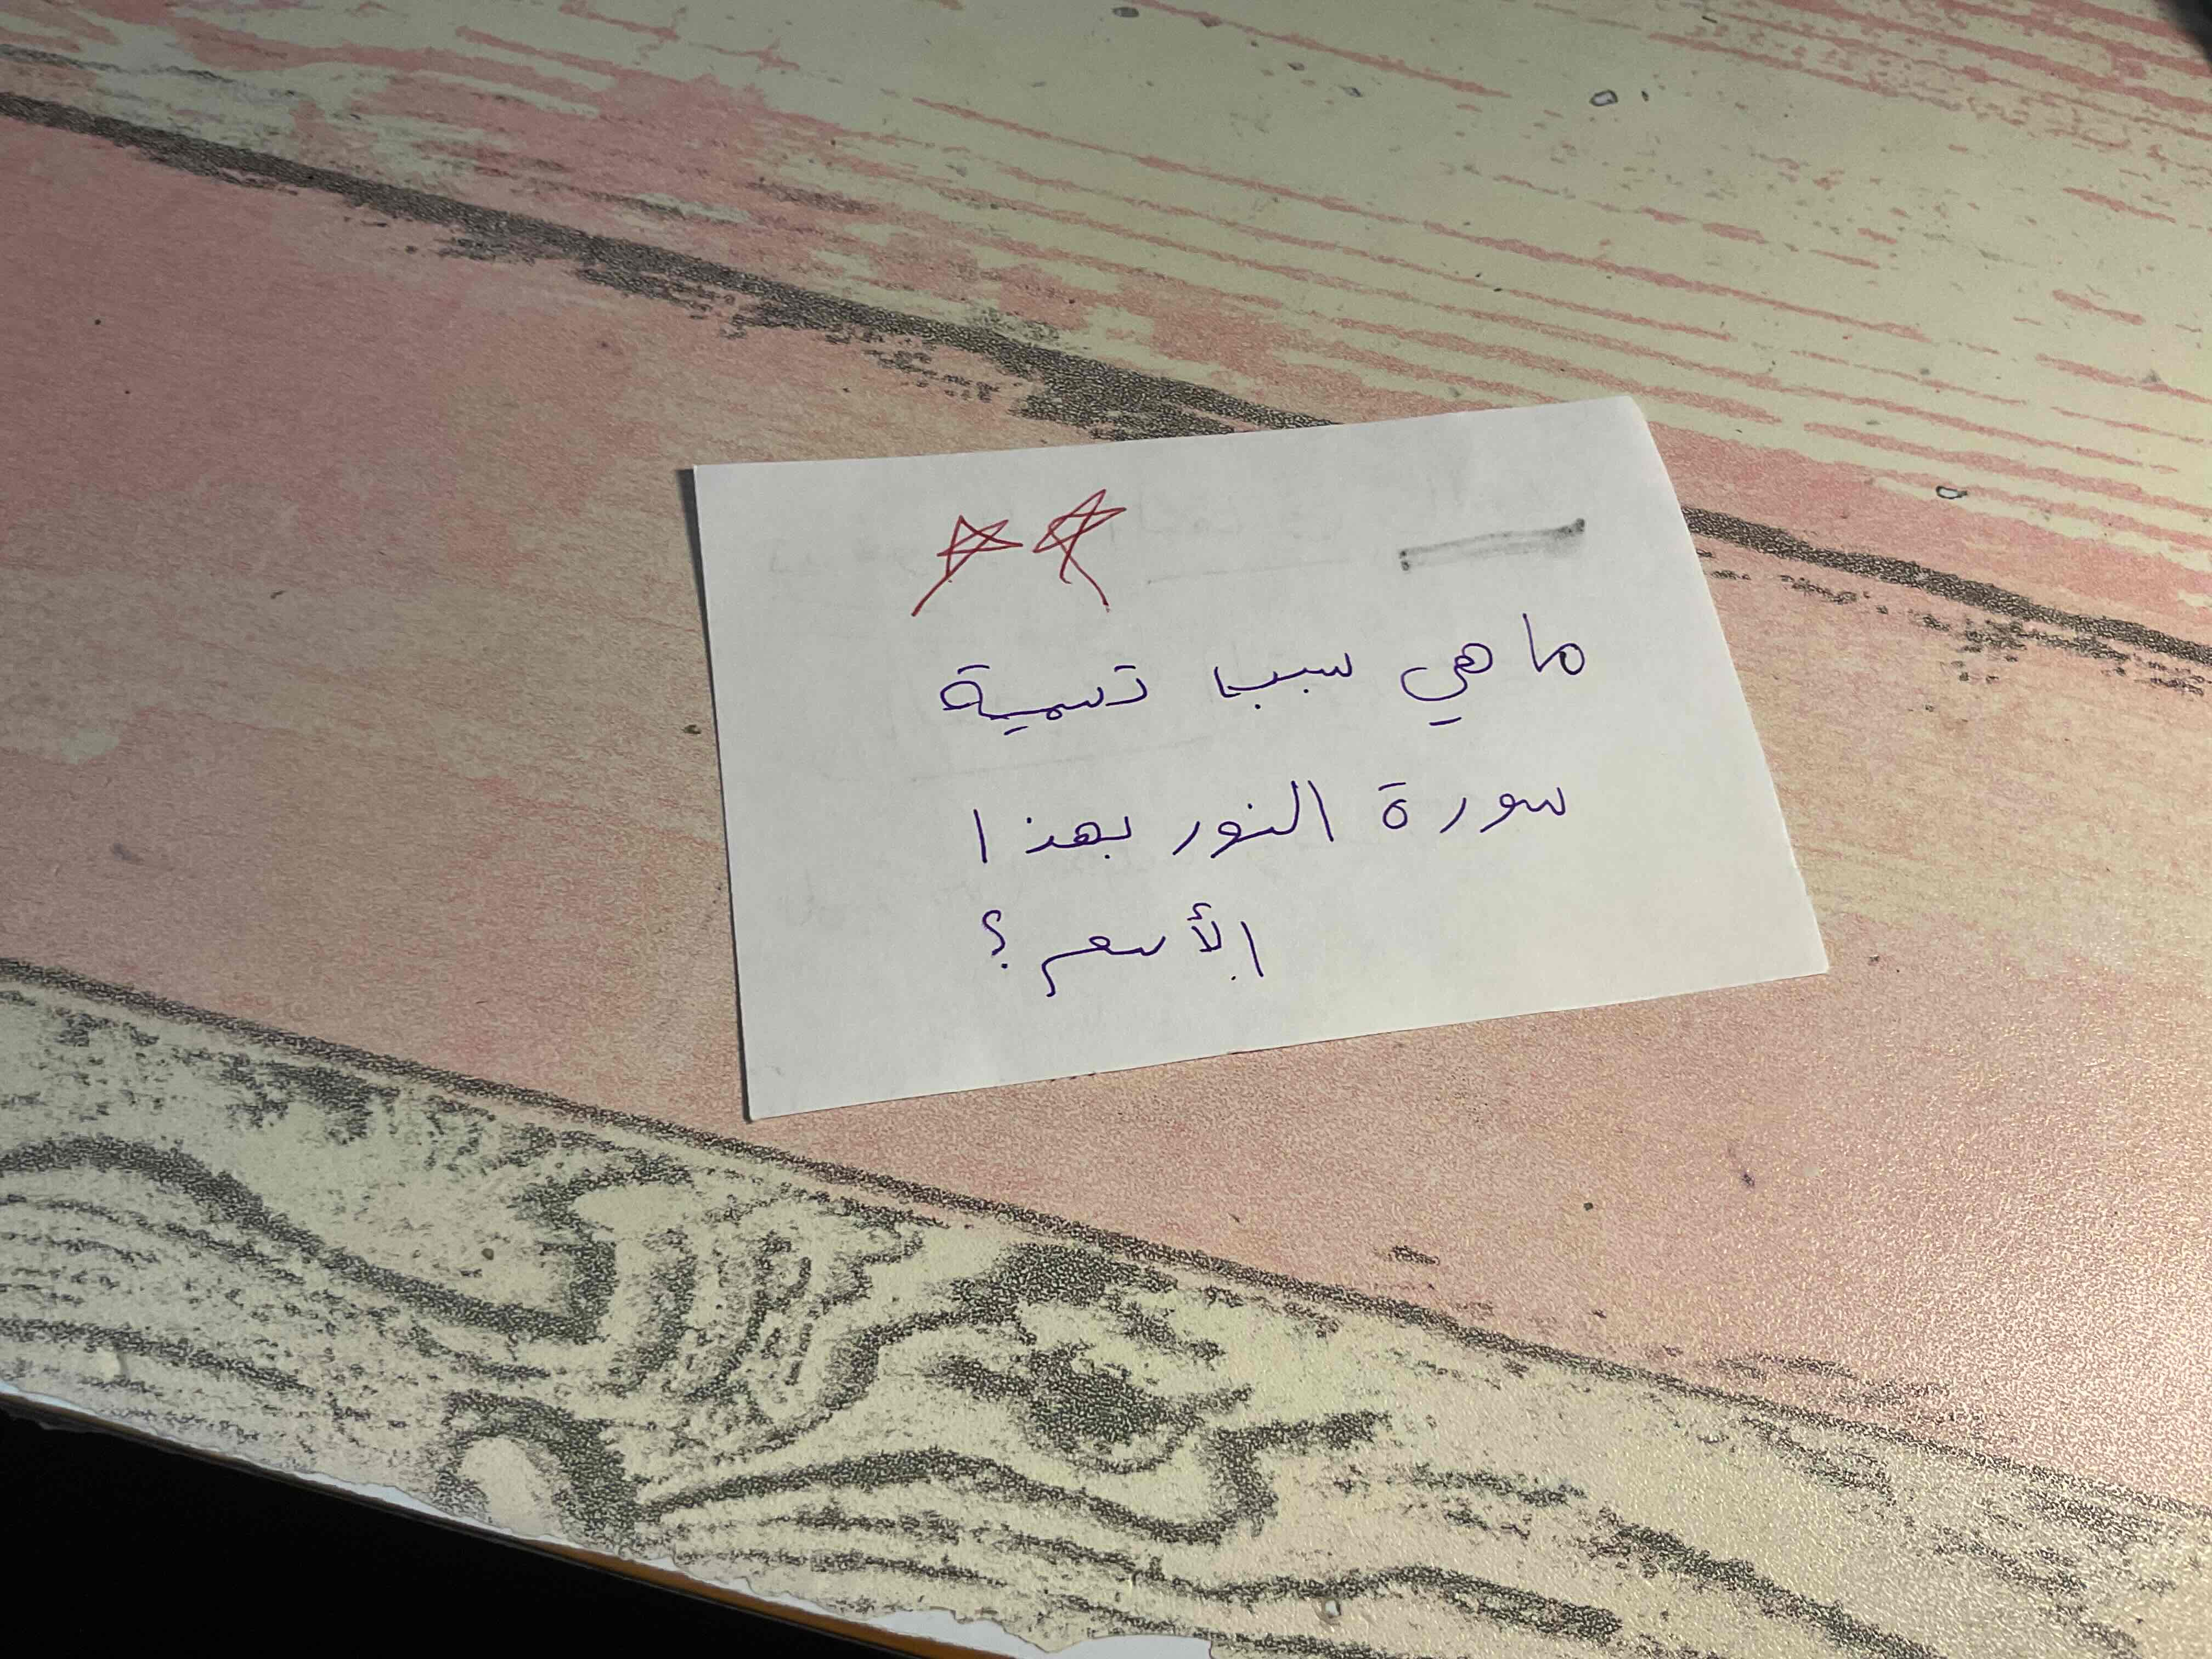 ما هي سبب تسمية
سورة النور بهذا
الأسم؟